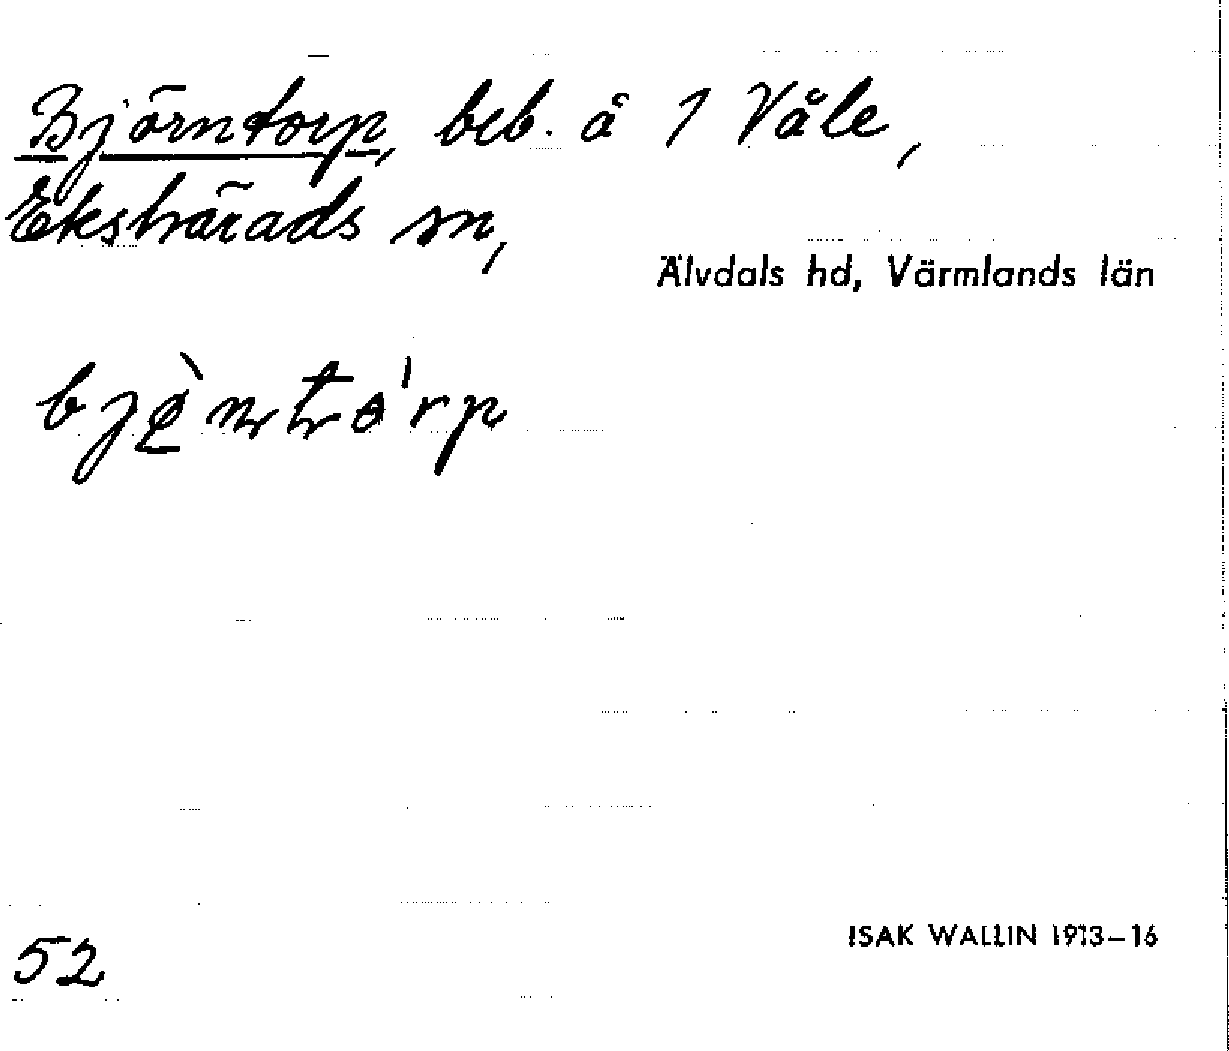 Björntorp, beb. å 1 Våle,
Ekshärads sn,
Älvdals hd, Värmlands län
52
ISAK WALLIN 1913–16